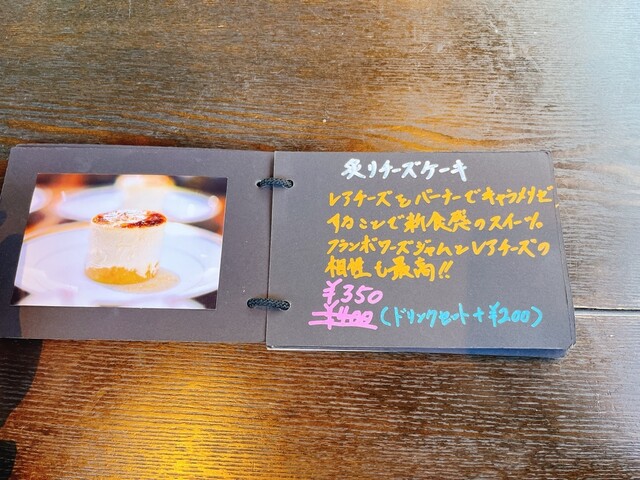 炙りチーズケーキ
レアチーズをバーナーでキャラメリゼ
することで新食感のスイーツ。
フランボワーズジャムとレアチーズの
相性も最高!!
¥350
¥400 (ドリンクセット+¥200)